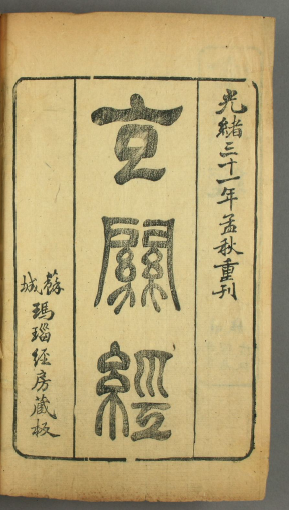 光緒三十一年孟秋重刊
玄關經
蘇城瑪瑙經房藏板